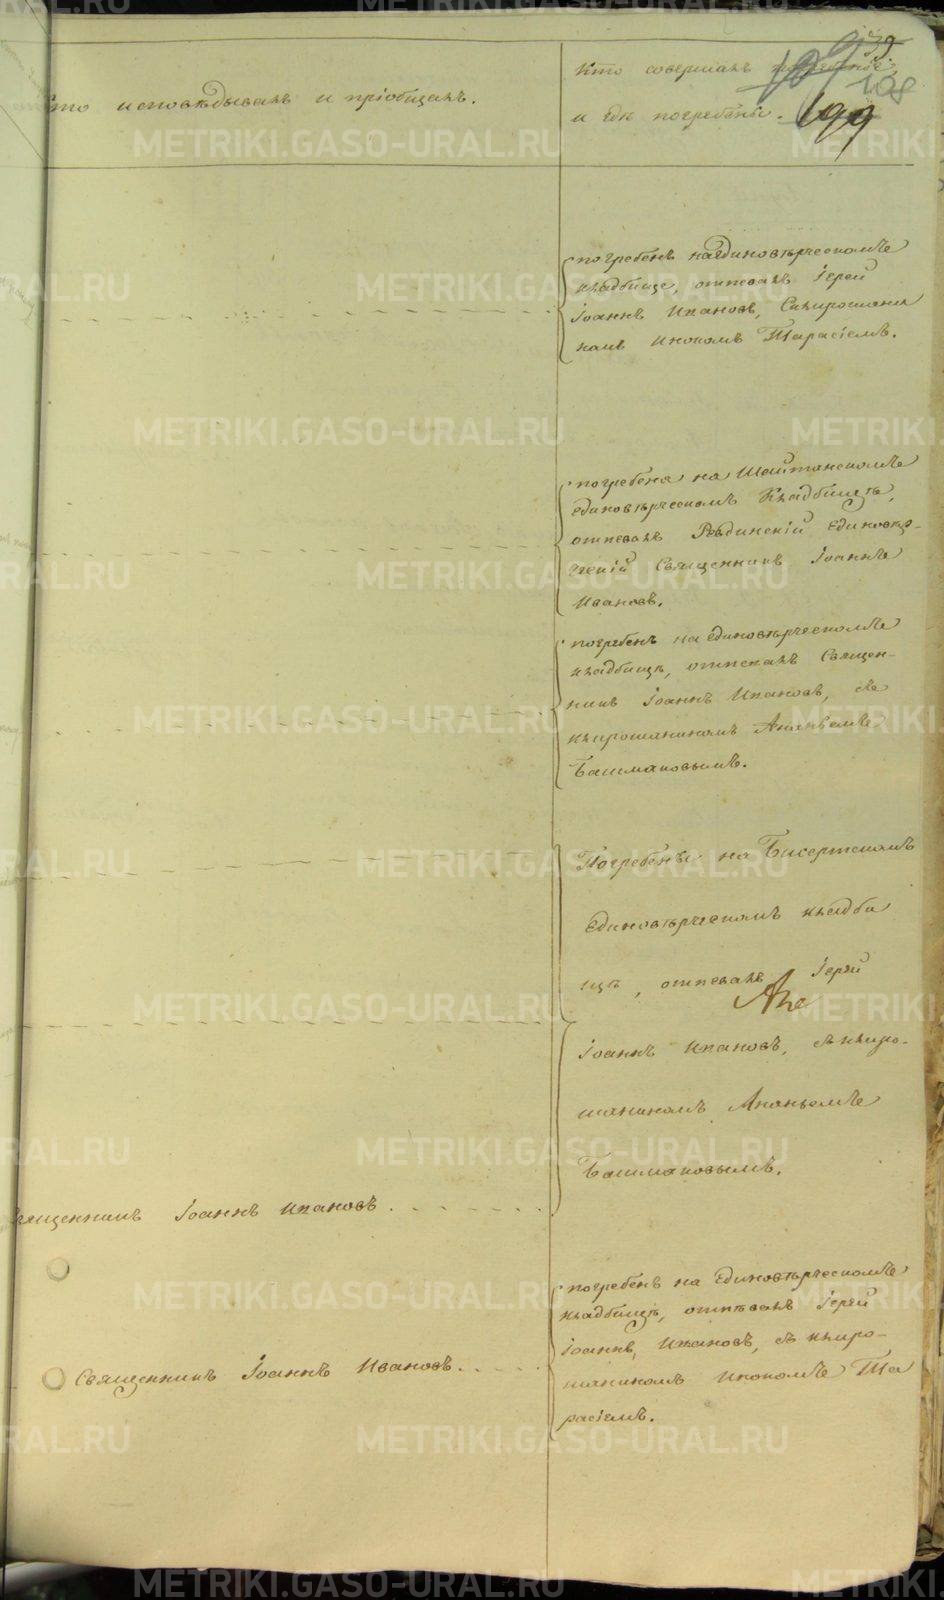 Кто исповѣдывалъ и пріобщалъ.
Кто совершалъ погребеніе,
и гдѣ погребены.
39
108
199
погребенъ на единовѣрческомъ
кладбище, отпевалъ Іерей
Іоаннъ Ивановъ,
инокомъ Тарасіемъ.
погребена на Шайтанскомъ
единовѣрческомъ Кладбищѣ,
отпевалъ Ревдинскій Единовѣр-
ческій Священникъ Іоаннъ
Ивановъ.
погребенъ на единовѣрческомъ
кладбищѣ, отпевалъ Священ-
никъ Іоаннъ Ивановъ, съ
клирошаникомъ Ананьемъ
Башмаковымъ.
Погребены на Бисертскомъ
Единовѣрческомъ кладби
щѣ, отпевалъ Іерей
Іоаннъ Ивановъ, съ клиро-
шаникомъ Ананьемъ
Башмаковымъ.
Священникъ Іоаннъ Ивановъ
погребенъ на Единовѣрческомъ
кладбищѣ, отпѣвалъ Іерей
Іоаннъ, Ивановъ, съ клиро-
шаникомъ Инокомъ Та
расіемъ.
Священникъ Іоаннъ Ивановъ.
METRIKI.GASO-URAL.RU